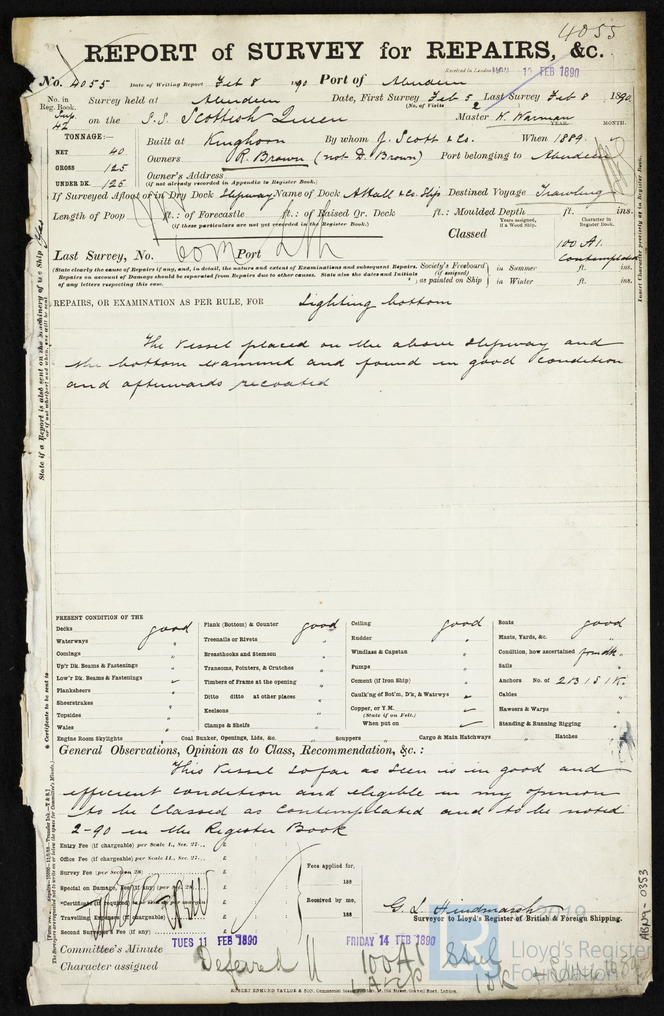 4055
REPORT of SURVEY for REPAIRS, &c.
Received in London 10 FEB 1890
No. 4055 Date of Writing Report Feb 8 1890 Port of Aberdeen
No. in Reg. Book. Survey held at Aberdeen Date, First Survey Feb 5 Last Survey Feb 8 1890
(No. of Visits 2)
Sup. 42 on the S.S. Scottish Queen Master
YEAR. MONTH.
TONNAGE:—
NET 40
GROSS 125
UNDER DK. 125
Built at Kinghorn By whom J. Scott & Co. When 1889
Owners R. Brown (not D. Brown) Port belonging to Aberdeen
Owner's Address
(if not already recorded in Appendix to Register Book.)
If Surveyed Afloat or in Dry Dock Slipway Name of Dock A Hall & Co. Slip Destined Voyage Trawling
Length of Poop ft.: of Forecastle ft.: of Raised Qr. Deck ft.: Moulded Depth ft. ins.
(if these particulars are not yet recorded in the Register Book.)
Years assigned, if a Wood Ship.
Character in Register Book.
Classed 100 A1. Contemplated
Last Survey, No. Port
(State clearly the cause of Repairs if any, and, in detail, the nature and extent of Examinations and subsequent Repairs.
Repairs on account of Damage should be separated from Repairs due to other causes. State also the dates and Initials
of any letters respecting this case.
Society's Freeboard (if assigned) as painted on Ship
in Summer ft. ins.
in Winter ft. ins.
REPAIRS, OR EXAMINATION AS PER RULE, FOR Sighting bottom
The Vessel placed on the above slipway and
the bottom examined and found in good condition
and afterwards recoated
PRESENT CONDITION OF THE
Decks good
Waterways "
Comings "
Up'r Dk. Beams & Fastenings "
Low'r Dk. Beams & Fastenings
Planksheers "
Sheerstrakes "
Topsides "
Wales "
Engine Room Skylights
Plank (Bottom) & Counter good
Treenails or Rivets "
Breasthooks and Stemson "
Transoms, Pointers, & Crutches "
Timbers of Frame at the opening "
Ditto ditto at other places "
Keelsons "
Clamps & Shelfs "
Coal Bunker, Openings, Lids, &c.
Ceiling good
Rudder "
Windlass & Capstan "
Pumps "
Cement (if Iron Ship) "
Caulk'ng of Bot'm, D'k, & Watrwys
Copper, or Y.M.
(State if on Felt.)
When put on
Scuppers
Cargo & Main Hatchways
Boats good
Masts, Yards, &c. "
Condition, how ascertained from dk.
Sails "
Anchors No. of 2 B 1 S 1 K.
Cables "
Hawsers & Warps "
Standing & Running Rigging "
Hatches "
General Observations, Opinion as to Class, Recommendation, &c.:
This Vessel so far as seen is in good and
efficient condition and eligible in my opinion
to be classed as contemplated and to be noted
2-90 in the Register Book
Entry Fee (if chargeable) per Scale I., Sec. 27 £
Office Fee (if chargeable) per Scale II., Sec. 27 £
Survey Fee (per Section 28) £
Special on Damage, Fee (if any) (per Sec. 28) £
Travelling Expenses (if chargeable) £
Second Surveyor's Fee (if any) £
Fees applied for,
188
Received by me,
188
G. L. Hindmarsh
Surveyor to Lloyd's Register of British & Foreign Shipping.
Committee's Minute TUES 11 FEB 1890 FRIDAY 14 FEB 1890
Character assigned Deferred 100 A1 Steel
ROBERT EDMUND TAYLOR & SON,
State if a Report is also sent on the Machinery of the Ship
Certificate to be sent to
ABN9-0353
2019
Lloyd's Register
Foundation